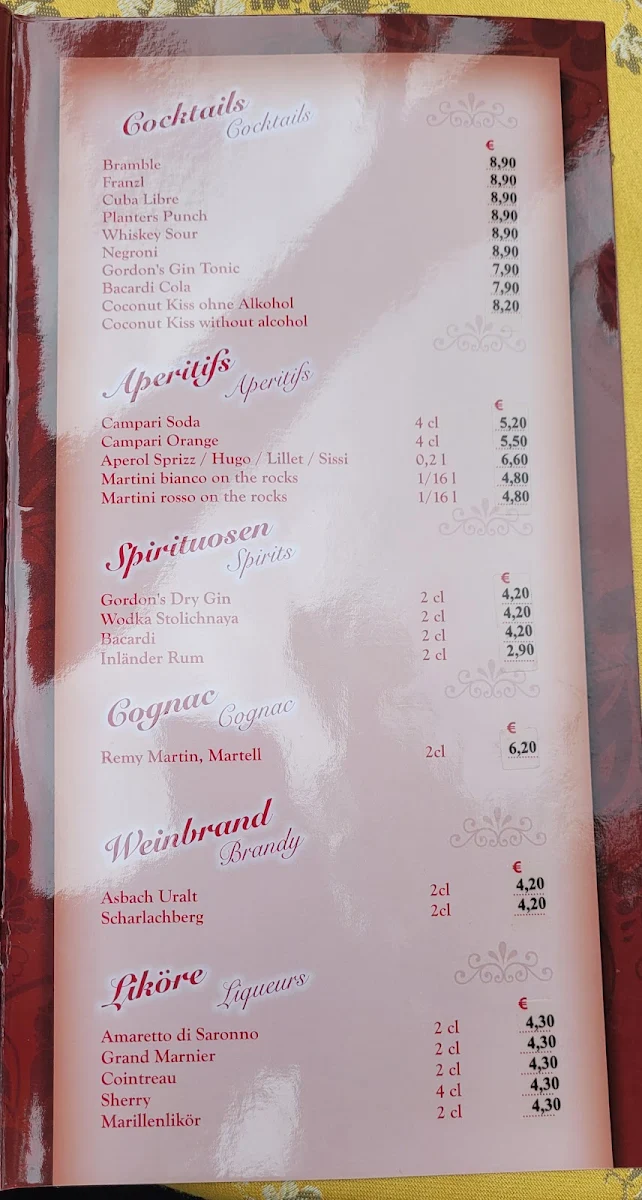 Cocktails Cocktails
€
Bramble 8,90
Franzl 8,90
Cuba Libre 8,90
Planters Punch 8,90
Whiskey Sour 8,90
Negroni 8,90
Gordon's Gin Tonic 7,90
Bacardi Cola 7,90
Coconut Kiss ohne Alkohol 8,20
Coconut Kiss without alcohol
Aperitifs Aperitifs
€
Campari Soda 4 cl 5,20
Campari Orange 4 cl 5,50
Aperol Sprizz / Hugo / Lillet / Sissi 0,2 l 6,60
Martini bianco on the rocks 1/16 l 4,80
Martini rosso on the rocks 1/16 l 4,80
Spirituosen Spirits
€
Gordon's Dry Gin 2 cl 4,20
Wodka Stolichnaya 2 cl 4,20
Bacardi 2 cl 4,20
Inländer Rum 2 cl 2,90
Cognac Cognac
€
Remy Martin, Martell 2cl 6,20
Weinbrand Brandy
€
Asbach Uralt 2cl 4,20
Scharlachberg 2cl 4,20
Liköre Liqueurs
€
Amaretto di Saronno 2 cl 4,30
Grand Marnier 2 cl 4,30
Cointreau 2 cl 4,30
Sherry 4 cl 4,30
Marillenlikör 2 cl 4,30